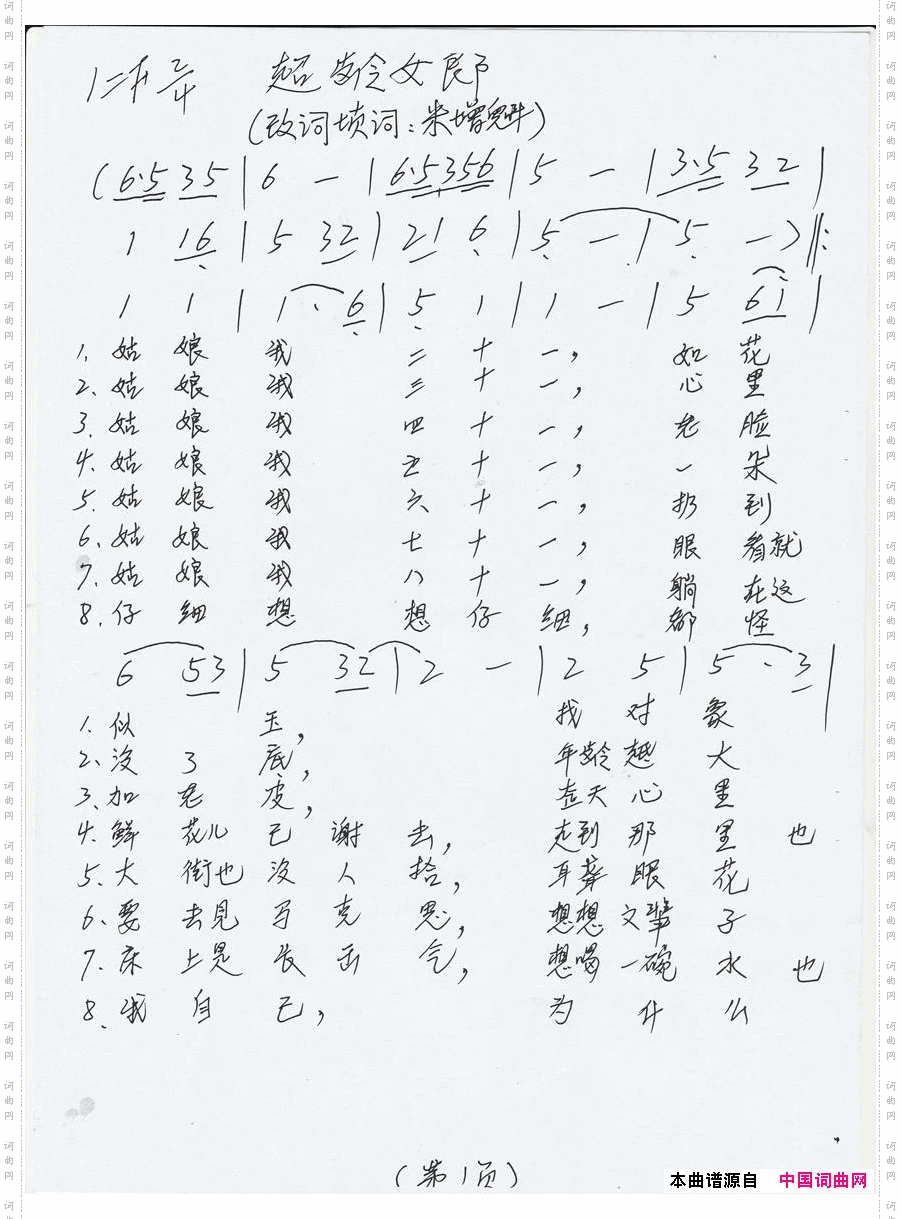 1=F 2/4 超龄女郎
(改词填词：米增魁)
(6·5 35 | 6 - | 6·5 356 | 5 - | 3·5 32 |
1 16 | 5 32 | 21 6 | 5 - | 5 -) ‖:
1 1 | 1 · 6 | 5 1 | 1 - | 5 61 |
1. 姑娘我二十一，如花
2. 姑娘我三十一，心里
3. 姑娘我四十一，老脸
4. 姑娘我五十一，一朵
5. 姑娘我六十一，扔到
6. 姑娘我七十一，眼看就
7. 姑娘我八十一，躺在这
8. 仔细想想仔细，都怪
6 53 | 5 32 | 2 - | 2 5 | 5 · 3 |
1. 似玉，找对象
2. 没了底，年龄越大
3. 加老皮，天心里
4. 鲜花儿已谢去，走到那里也
5. 大街也没人拾，耳聋眼花
6. 要去见马克思，想想这辈子
7. 床上是长出气，想喝一碗水也
8. 我自己，为什么
(第1页)
本曲谱源自 中国词曲网
词曲网